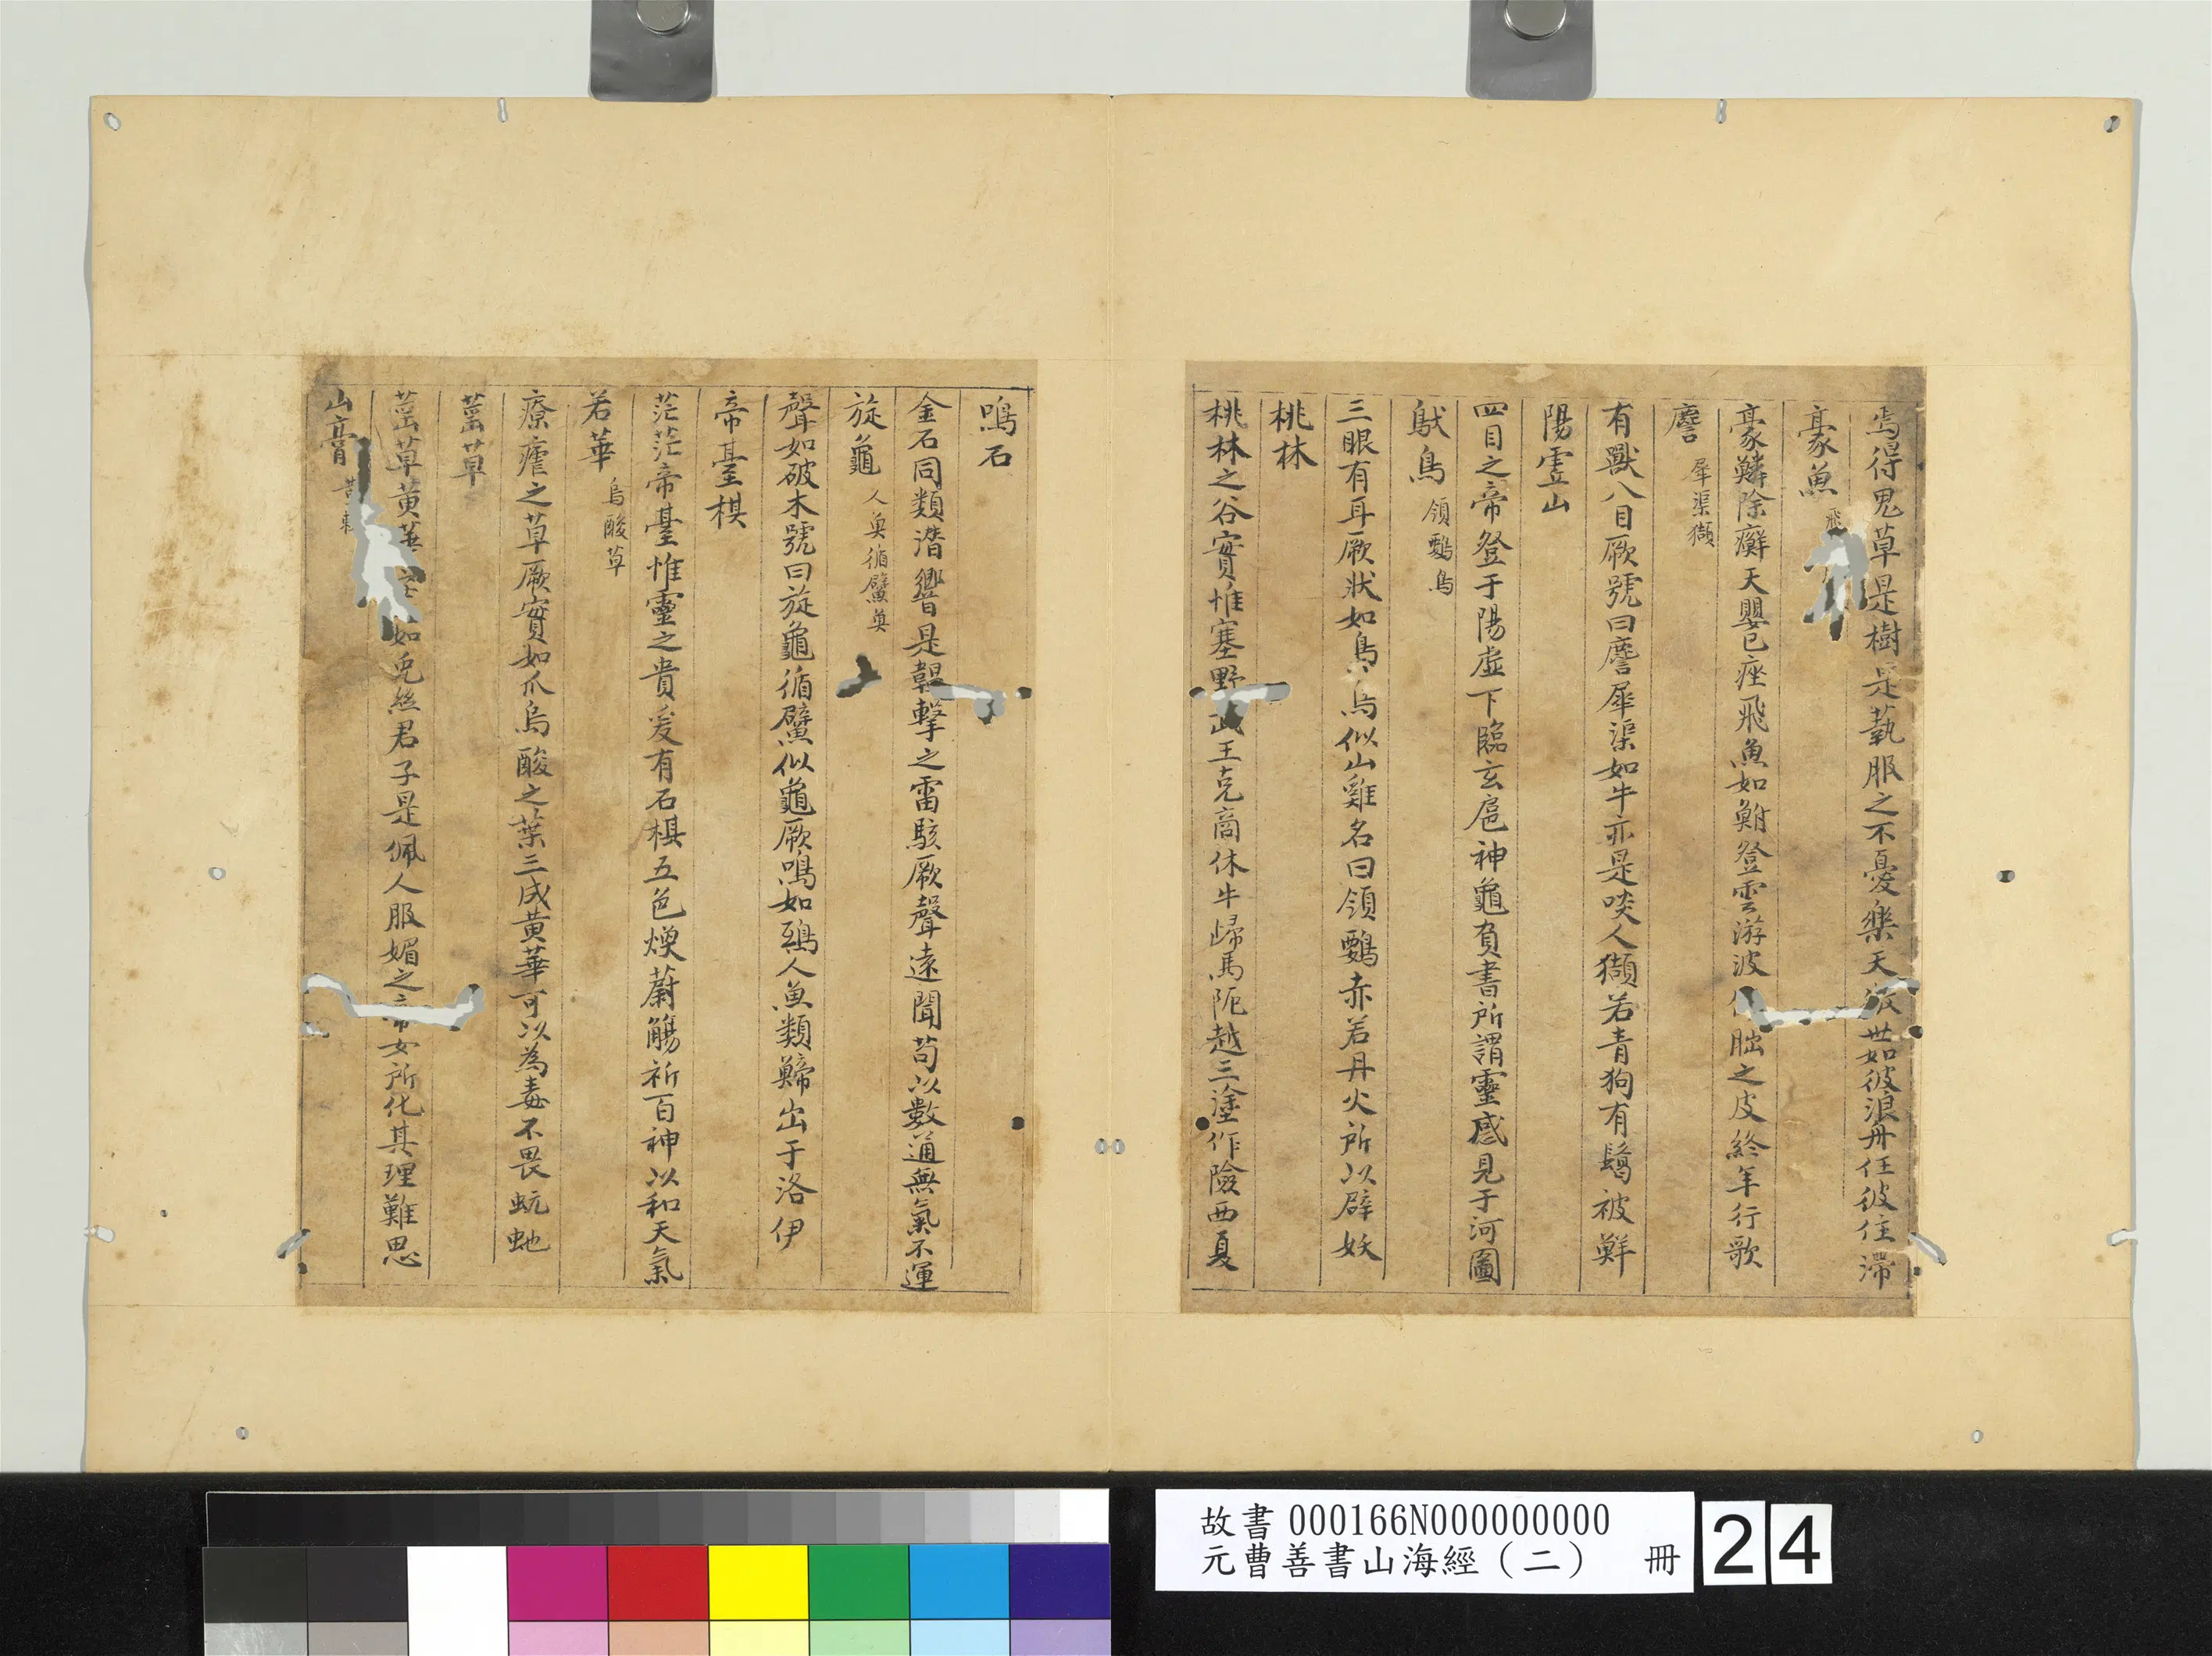 焉得鬼草是樹是蓺服之不憂樂天傲世如彼浪舟任彼往滯
豪魚 飛
豪鱗除癬天嬰已痤飛魚如鮒登雲游波 䏣之皮終年行歌
䧹 犀渠獺
有獸八目厥號曰䧹犀渠如牛亦是啖人獺若青狗有鬣被鮮
陽虛山
四目之帝登于陽虛下臨玄扈神龜負書所謂靈感見于河圖
䲦鳥 領鸚鳥
三眼有耳厥狀如鳥鳥似山雞名曰領鸚赤若丹火所以辟妖
桃林
桃林之谷實惟塞野武王克商休牛歸馬阨越三塗作險西夏
鳴石
金石同類潛響是韞擊之雷駭厥聲遠聞苟以數通無氣不運
旋龜 人奠循鱉奠
聲如破木號曰旋龜循鱉似龜厥鳴如鵄人魚類鯑出于洛伊
帝臺棋
茫茫帝臺惟靈之貴爰有石棋五色煥蔚觴祈百神以和天氣
若華 烏酸草
療瘧之草厥實如爪烏酸之葉三成黃華可以為毒不畏蚖虵
䔄草
䔄草黃華 如兔絲君子是佩人服媚之帝女所化其理難思
山膏
故書 000166N000000000
元曹善書山海經（二） 冊 24